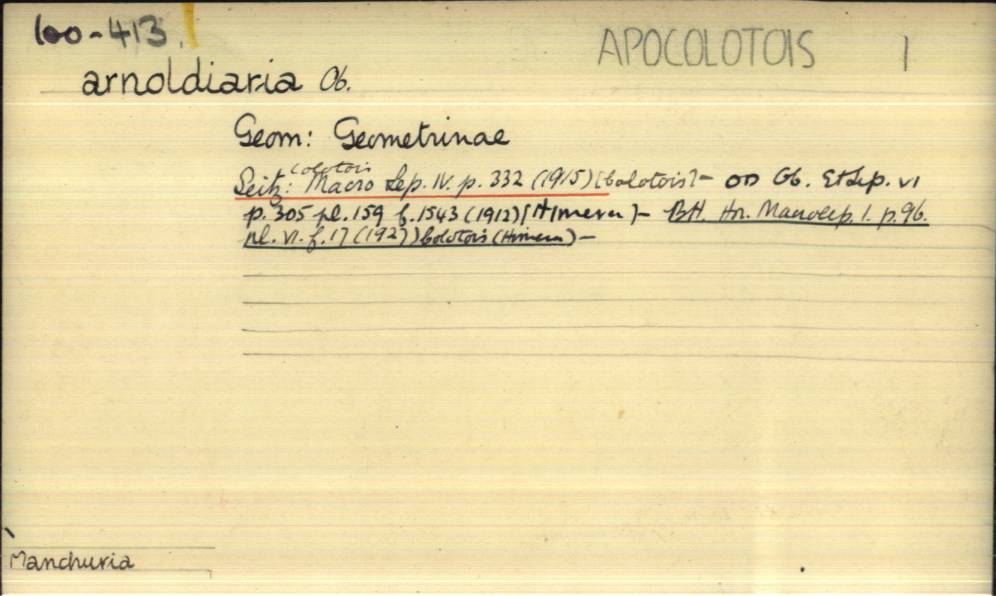 100-413.
APOCOLOTOIS 1
arnoldiaria Ob.
Geom: Geometrinae
Colotois
Seitz: Macro Lep. IV. p. 332 (1915) [Colotois] - OD Ob. Et Lep. VI
p. 305 pl. 159 f. 1543 (1912) [Himera] - BH. Hn. Macrolep. 1. p. 96.
pl. VI. f. 17 (1927) Colotois (Himera) -
Manchuria